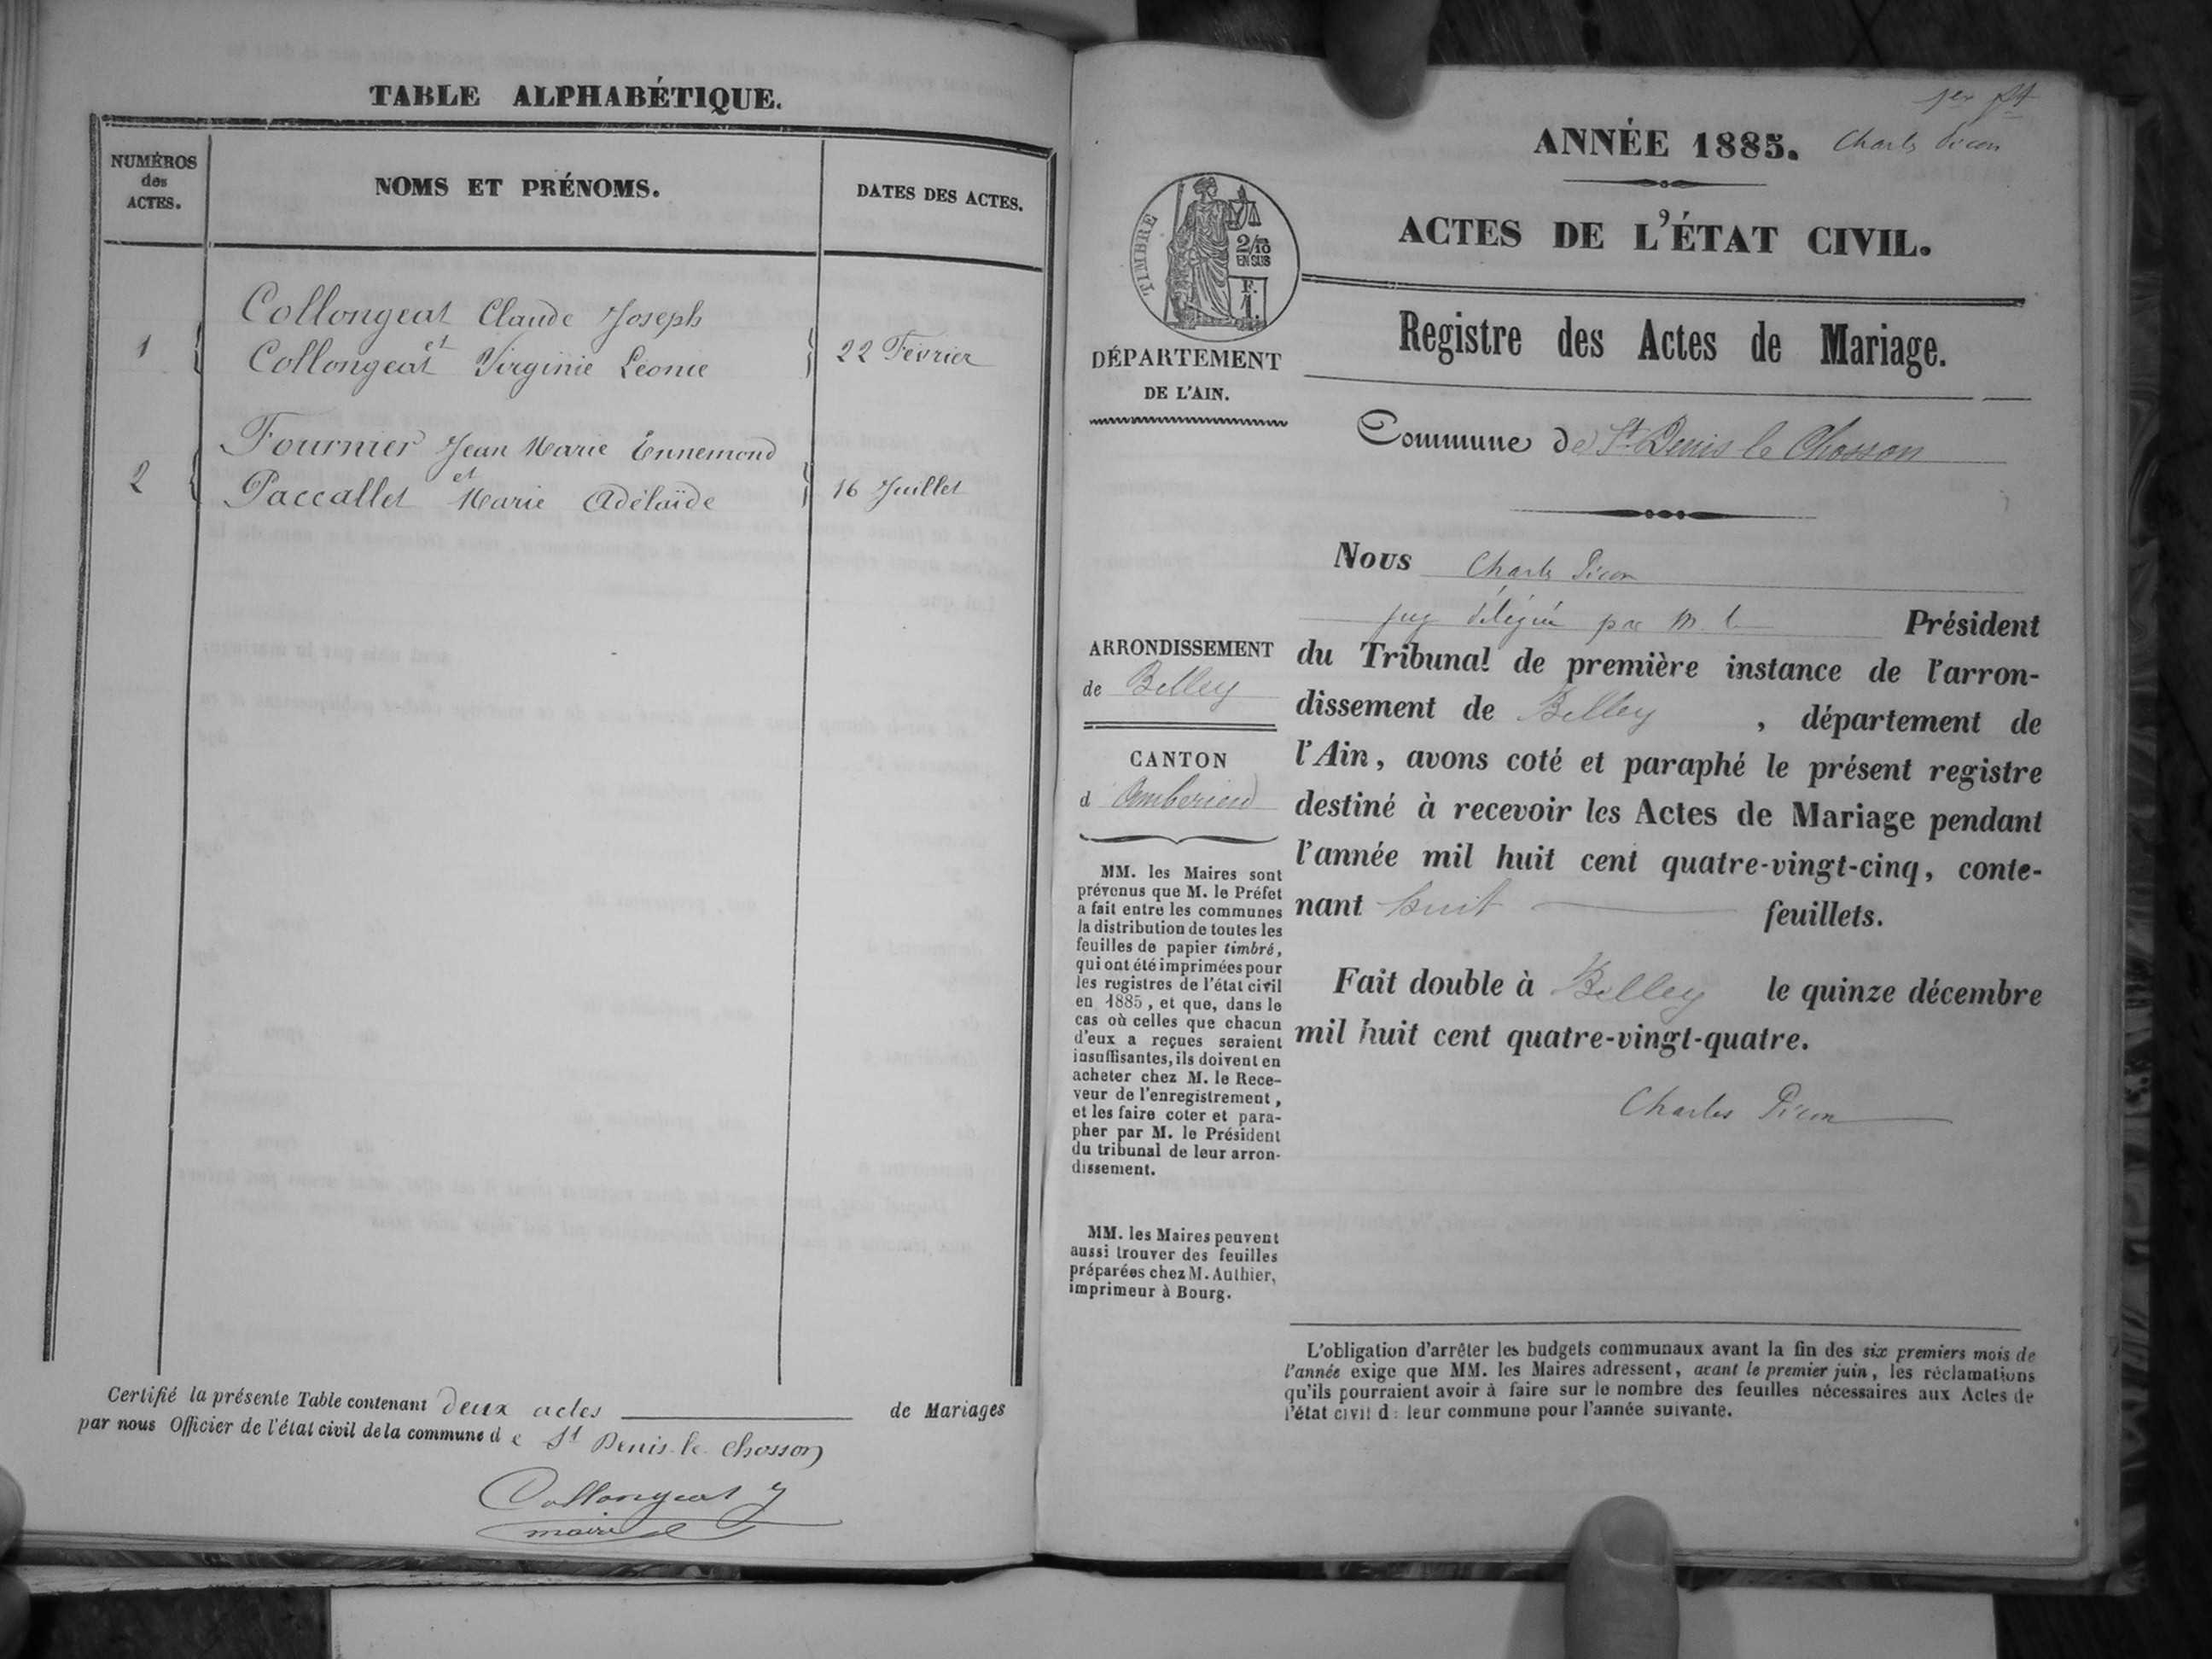 TABLE ALPHABÉTIQUE.
NUMÉROS
des
ACTES.
NOMS ET PRÉNOMS.
DATES DES ACTES.
1
Collongeat Claude Joseph
et
Collongeat Virginie Léonie
22 Février
2
Fournier Jean Marie Ennemond
et
Paccallet Marie Adélaïde
16 Juillet
Certifié la présente Table contenant deux actes de Mariages
par nous Officier de l'état civil de la commune de St Denis-le-Chosson
Collongeat
maire
1er ft
Charles Picon
ANNÉE 1885.
ACTES DE L'ÉTAT CIVIL.
TIMBRE
2/10
EN SUS
F.
1.
DÉPARTEMENT
DE L'AIN.
Registre des Actes de Mariage.
Commune de St Denis le Chosson
ARRONDISSEMENT
de Belley
CANTON
d Amberieu
MM. les Maires sont
prévenus que M. le Préfet
a fait entre les communes
la distribution de toutes les
feuilles de papier timbré,
qui ont été imprimées pour
les registres de l'état civil
en 1885, et que, dans le
cas où celles que chacun
d'eux a reçues seraient
insuffisantes, ils doivent en
acheter chez M. le Rece-
veur de l'enregistrement,
et les faire coter et para-
pher par M. le Président
du tribunal de leur arron-
dissement.
MM. les Maires peuvent
aussi trouver des feuilles
préparées chez M. Authier,
imprimeur à Bourg.
Nous Charles Picon
juge délégué par M. le Président
du Tribunal de première instance de l'arron-
dissement de Belley, département de
l'Ain, avons coté et paraphé le présent registre
destiné à recevoir les Actes de Mariage pendant
l'année mil huit cent quatre-vingt-cinq, conte-
nant huit feuillets.
Fait double à Belley le quinze décembre
mil huit cent quatre-vingt-quatre.
Charles Picon
L'obligation d'arrêter les budgets communaux avant la fin des six premiers mois de
l'année exige que MM. les Maires adressent, avant le premier juin, les réclamations
qu'ils pourraient avoir à faire sur le nombre des feuilles nécessaires aux Actes de
l'état civil de leur commune pour l'année suivante.